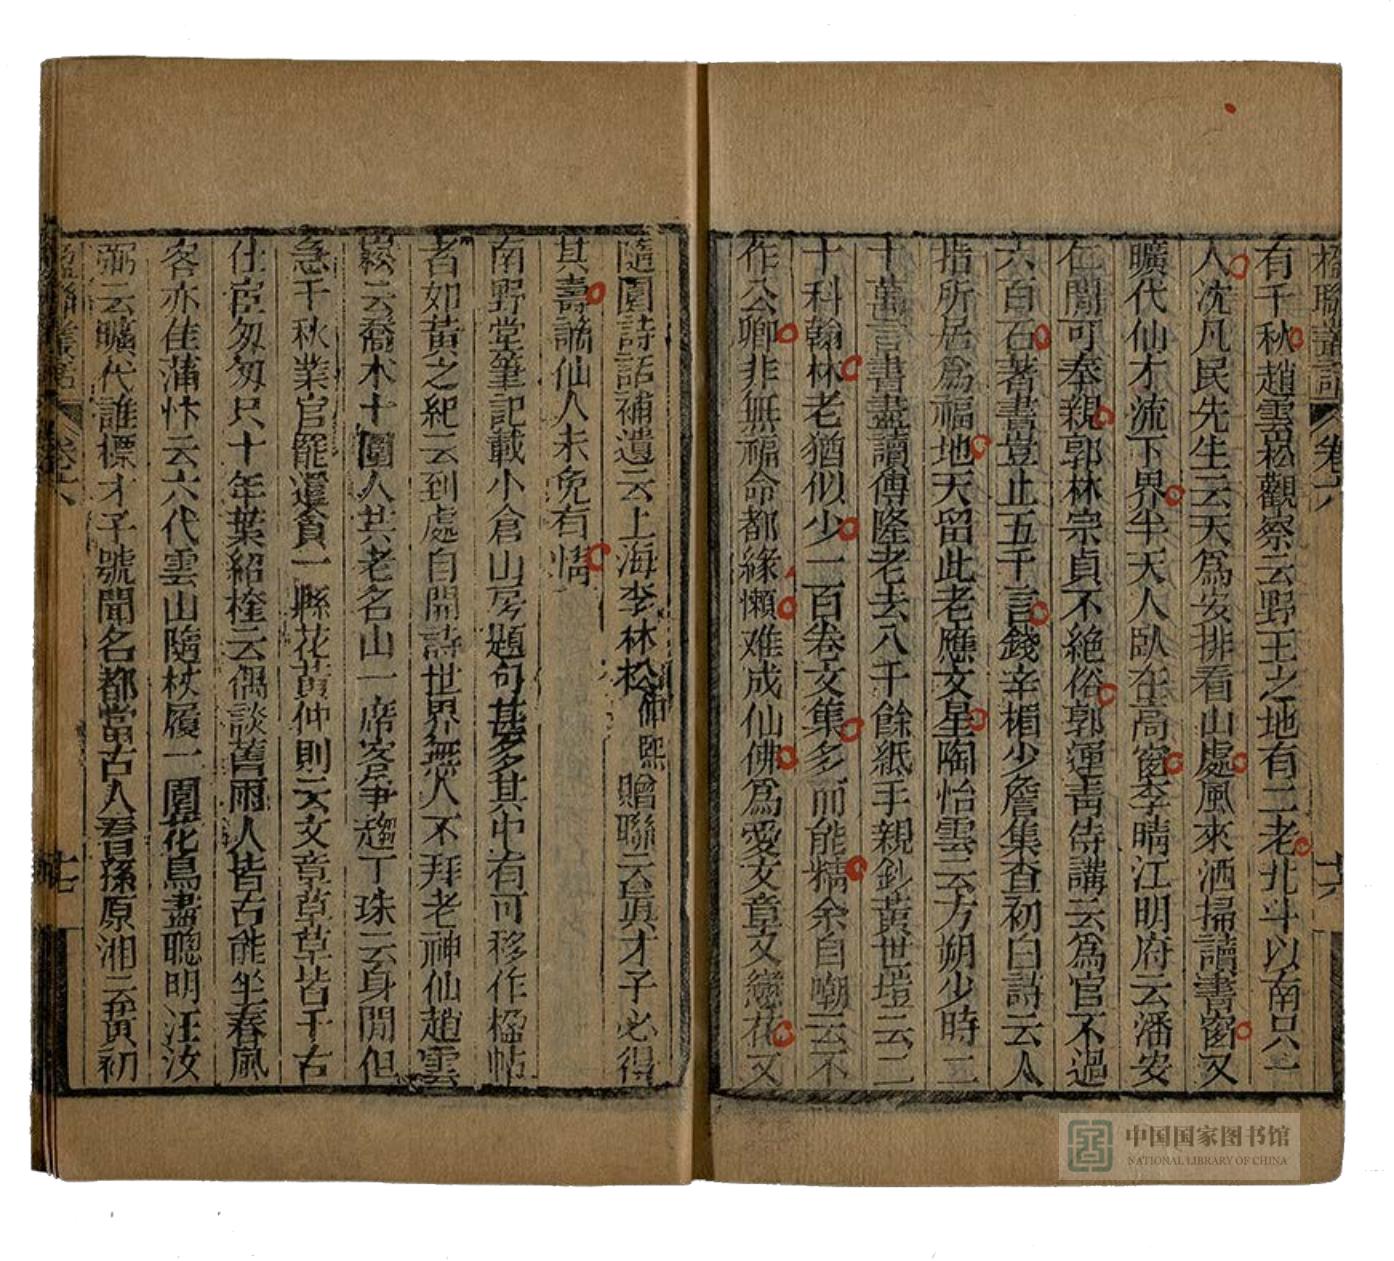 楹聯叢話 卷六 十六
有千秋趙雲崧觀察云野王之地有二老北斗以南只一
人沈凡民先生云天爲安排看山處風來洒掃讀書窗又
曠代仙才流下界半天人臥在高窗李晴江明府云潘安
仁閒可奉親郭林宗貞不絕俗郭運靑侍講云爲官不過
六百石著書豈止五千言錢辛楣少詹集查初白詩云人
指所居爲福地天留此老應文星陶怡雲云方朔少時二
十萬言書盡讀傅隆老去八千餘紙手親鈔黃世塏云二
十科翰林老猶似少一百卷文集多而能精余自嘲云不
作公卿非無福命都緣懶难成仙佛爲愛文章又戀花又
隨園詩話補遺云上海李林松仲熙贈聯云眞才子必得
其壽謫仙人未免有情
南野堂筆記載小倉山房題句甚多其中有可移作楹帖
者如黃之紀云到處自開詩世界無人不拜老神仙趙雲
崧云喬木十圍人共老名山一席客爭趨丁珠云身閒但
急千秋業官罷還貧一縣花黃仲則云文章草草皆千古
仕宦匆匆只十年葉紹楏云偶談舊雨人皆古能坐春風
客亦佳蒲忭云六代雲山隨杖履一園花鳥盡聰明汪汝
弼云曠代誰標才子號聞名都當古人看孫原湘云黃初
楹聯叢話 卷六 十七
中国国家图书馆
NATIONAL LIBRARY OF CHINA